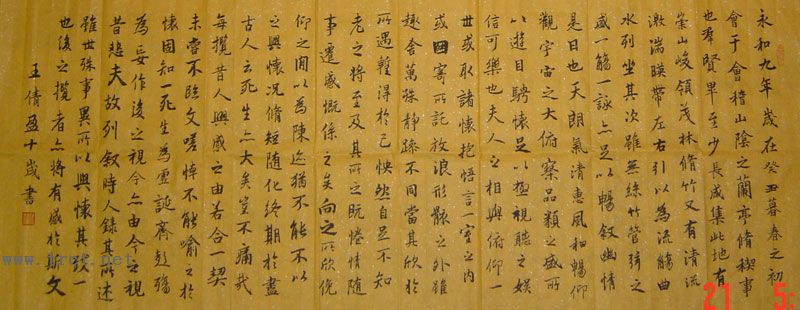 永和九年歲在癸丑暮春之初
會于會稽山陰之蘭亭脩稧事
也羣賢畢至少長咸集此地有
崇山峻領茂林脩竹又有清流
激湍暎帶左右引以為流觴曲
水列坐其次雖無絲竹管弦之
盛一觴一詠亦足以暢叙幽情
是日也天朗氣清惠風和暢仰
觀宇宙之大俯察品類之盛所
以遊目騁懷足以極視聽之娛
信可樂也夫人之相與俯仰一
世或取諸懷抱悟言一室之內
或因寄所託放浪形骸之外雖
趣舍萬殊靜躁不同當其欣於
所遇蹔得於己怏然自足不知
老之將至及其所之既惓情隨
事遷感慨係之矣向之所欣俛
仰之間以為陳迹猶不能不以
之興懷况脩短隨化終期於盡
古人云死生亦大矣豈不痛哉
每攬昔人興感之由若合一契
未嘗不臨文嗟悼不能喻之於
懷固知一死生為虛誕齊彭殤
為妄作後之視今亦由今之視
昔悲夫故列叙時人錄其所述
雖世殊事異所以興懷其致一
也後之攬者亦將有感於斯文
王倩盈十歲書
21 5: